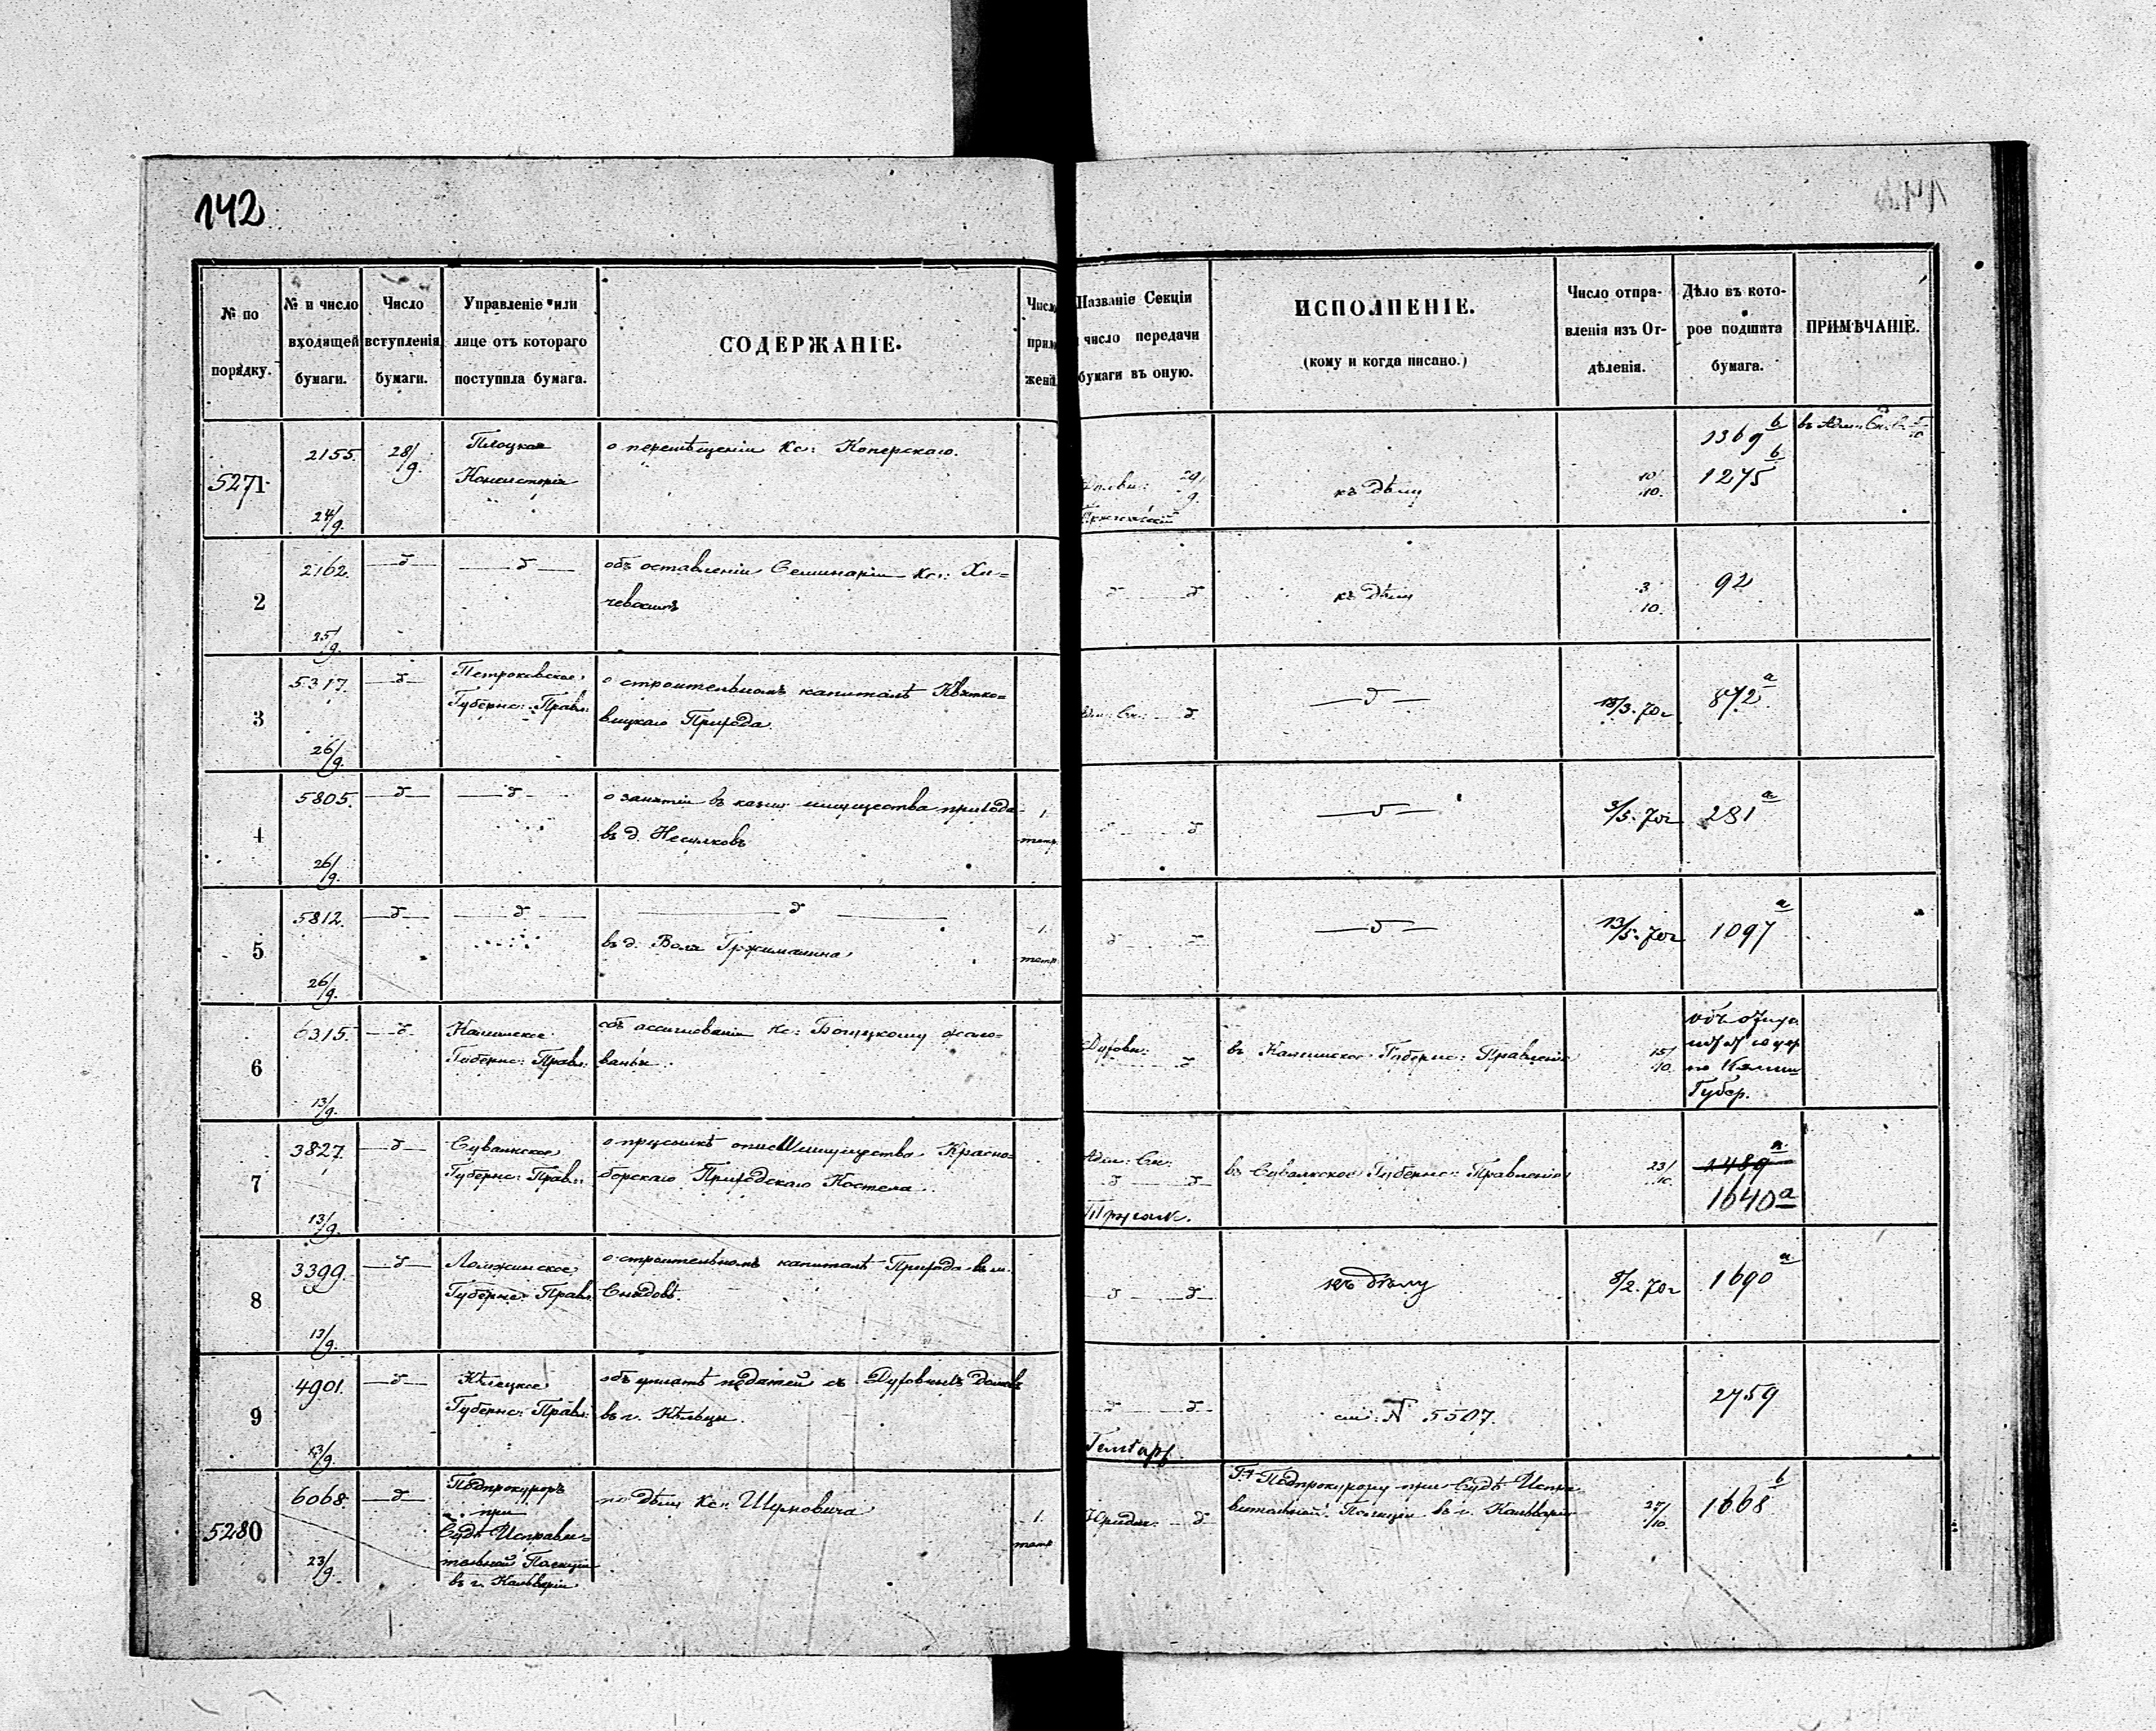 142
№ по порядку.
№ и число входящей бумаги.
Число вступленія бумаги.
Управленіе или лице отъ котораго поступила бумага.
СОДЕРЖАНІЕ.
Число прил жені
Названіе Секціи число передачи бумаги въ оную.
ИСПОЛНЕНІЕ.
(кому и когда писано.)
Число отправленія изъ Отдѣленія.
Дѣло въ которое подшита бумага.
ПРИМѢЧАНІЕ.
5271
2155.
24/9.
28/9.
Плоцкая
Консисторія
о перемѣщеніи Кс: Коперскаго.
29/9.
къ дѣлу
10/10.
1369 b
1275 b
2
2162.
25/9.
д
д
объ оставленіи Семинаріи Кс:
д д
къ дѣлу
3/10.
92
3
5317.
26/9.
д
Петроковское
Губернс: Правл:
о строительномъ капиталѣ Квятко=
вицкаго Прихода.
Адм: Ск: д
д
18/3. 70г
872 a
4
5805.
26/9.
д
д
о занятіи въ казну имущества прихода
въ д. Несулковъ
1.
тетр.
д
д
3/5. 70г
281 a
5
5812.
26/9.
д
д
д
въ д. Воля Гржималина
1.
тетр.
д д
д
13/5. 70г
1097 a
6
6315.
13/9.
д
Калишское
Губернс: Правл:
объ ассигнованіи Кс: жало=
ванья.
Духовн: д
въ Калишское Губернс: Правленіе
15/10.
по Калиш
Губер.
7
3827.
13/9.
д
Сувалкское
Губернс: Правл:
о присылкѣ описи имущества Красно=
борскаго Приходскаго Костела.
Адм: Ск:
д д
въ Сувалкское Губернс: Правленіе
23/10.
1489 a
1640 a
8
3399.
13/9.
д
Ломжинское
Губернс: Правл:
о строительномъ капиталѣ Прихода въ м.
Снядовѣ.
д д
къ дѣлу
8/2. 70г
1690 a
9
4901.
13/9.
д
Кѣлецкое
Губернс: Правл:
объ уплатѣ податей съ Духовныхъ домовъ
въ г. Кѣльцы.
д д
см: № 5507.
2759
5280
6068.
23/9.
д
Подпрокуроръ
при
Судѣ Исправи=
тельной Полиціи
въ г. Кальваріи
по дѣлу Кс:
1.
тетр
Юридич: д
Г. Подпрокурору при Судѣ Испра
вительной Полиціи въ г. Кальваріи
27/10.
1668 b